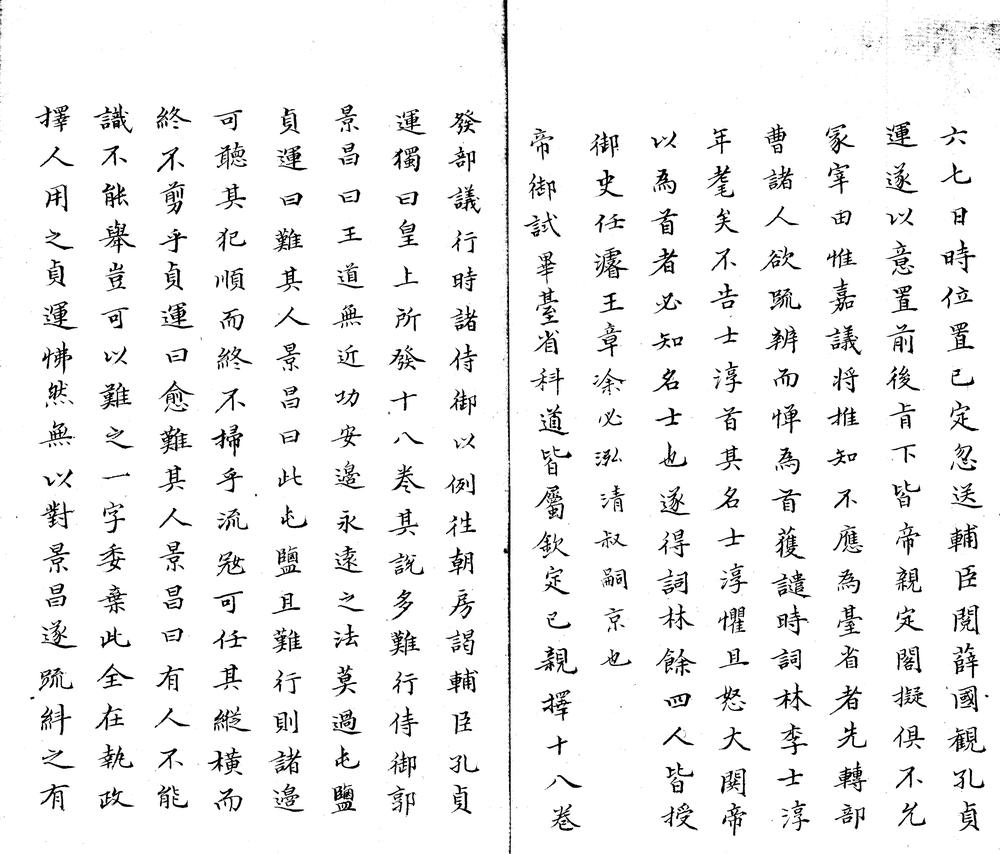 六七日時位置已定忽送輔臣閱薛國觀孔貞
運遂以意置前後旨下皆帝親定閣擬俱不允
冢宰田惟嘉議將推知不應為臺省者先轉部
曹諸人欲䟽辨而憚為首獲譴時詞林李士淳
年耄矣不告士淳首其名士淳懼且怒大関帝
以為首者必知名士也遂得詞林餘四人皆授
御史任濬王章凃必泓清叔嗣京也
帝御試畢臺省科道皆屬欽定已親擇十八卷
發部議行時諸侍御以例徃朝房謁輔臣孔貞
運獨曰皇上所發十八卷其說多難行侍御郭
景昌曰王道無近功安邊永遠之法莫過屯鹽
貞運曰難其人景昌曰此屯鹽且難行則諸邊
可聽其犯順而終不掃乎流㓂可任其縱橫而
終不剪乎貞運曰愈難其人景昌曰有人不能
識不能舉豈可以難之一字委棄此全在執政
擇人用之貞運怫然無以對景昌遂䟽糾之有